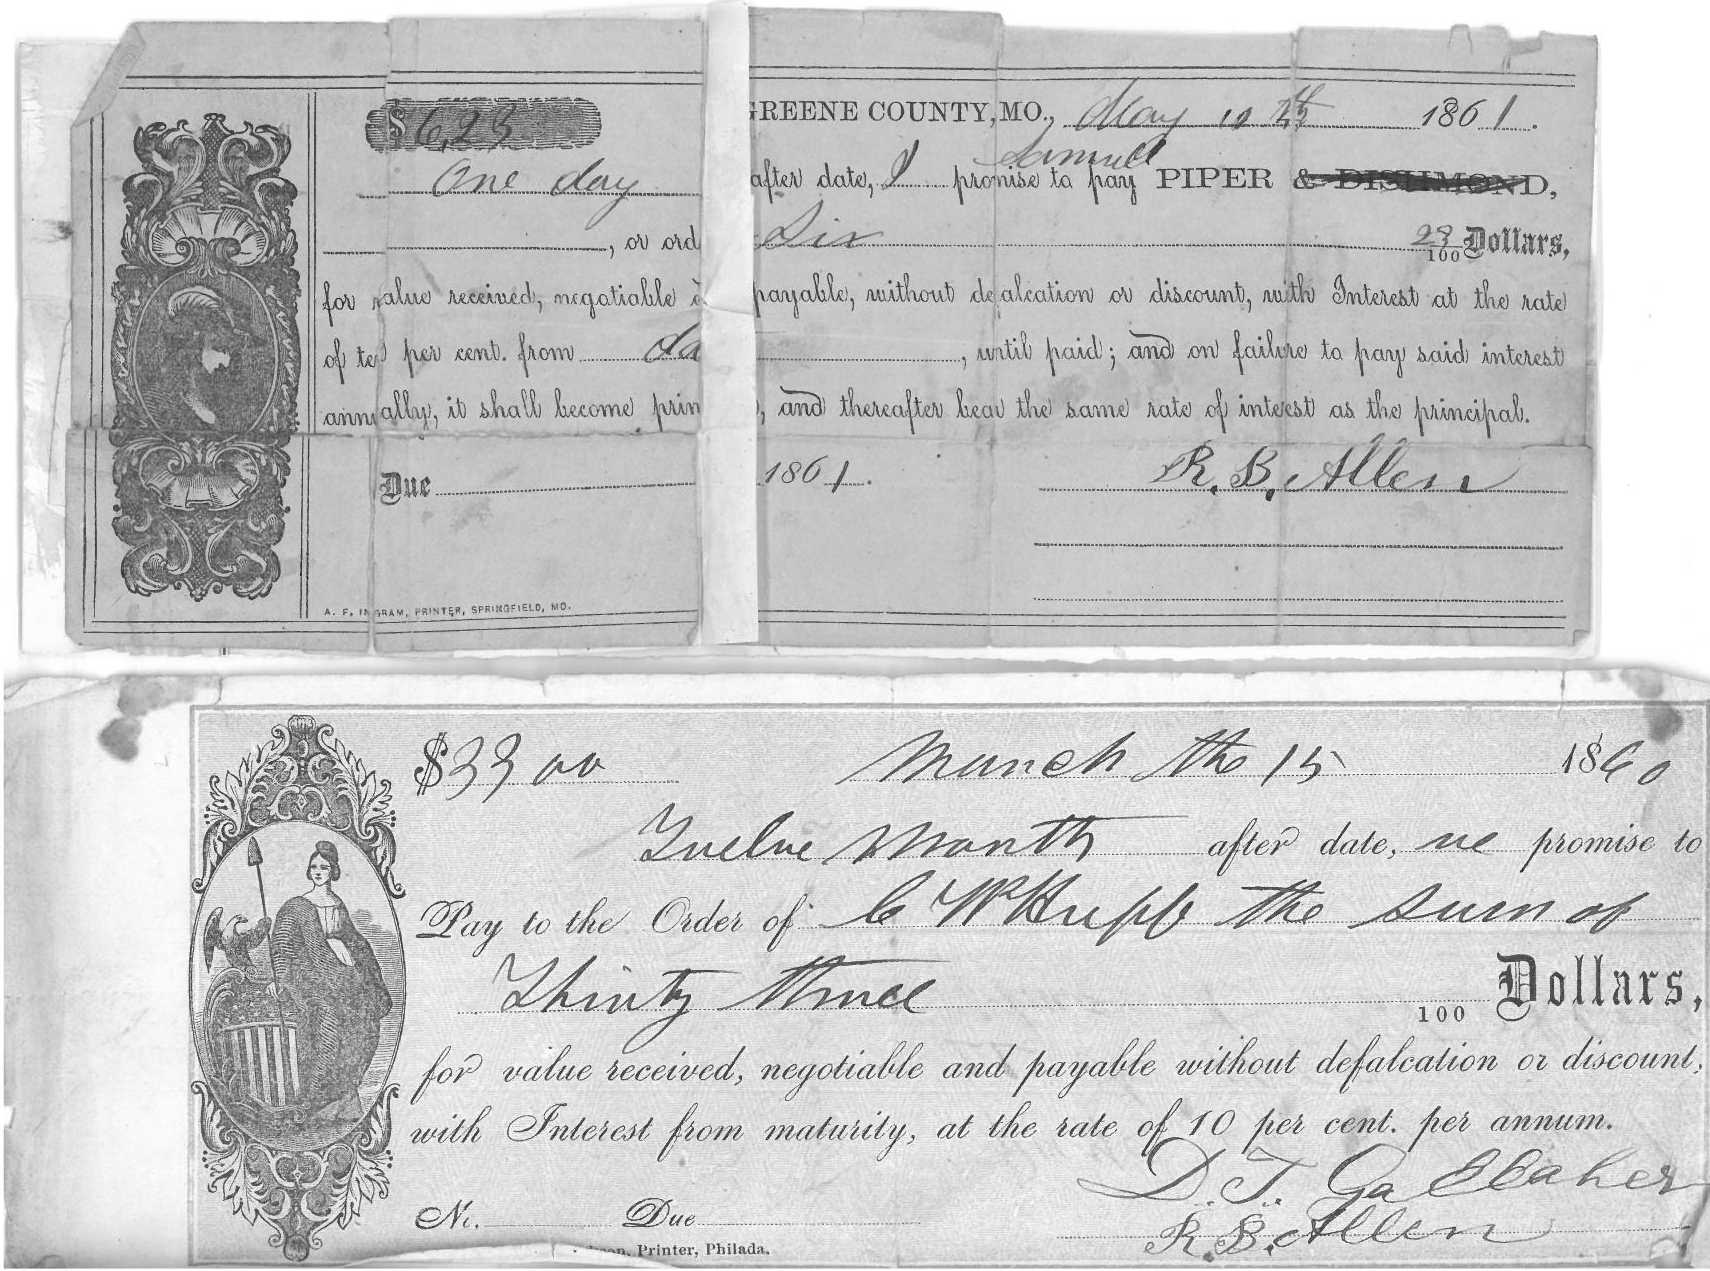 $6,23
GREENE COUNTY, MO., May 1861.
Samuel
One day after date, I promise to pay PIPER & DISHMOND,
, or ord Six 23/100 Dollars,
for value received, negotiable payable, without defalcation or discount, with Interest at the rate
of ten per cent. from da , until paid; and on failure to pay said interest
annually, it shall become prin , and thereafter bear the same rate of interest as the principal.
Due 1861.
R. B. Allen
A. F. INGRAM, PRINTER, SPRINGFIELD, MO.
$33 00 March the 15 1860
Twelve Month after date, we promise to
Pay to the Order of C W Hupp the sum of
Thirty three 100 Dollars,
for value received, negotiable and payable without defalcation or discount,
with Interest from maturity, at the rate of 10 per cent. per annum.
D. T. Gallaher
No. Due
R. B. Allen
Printer, Philada.